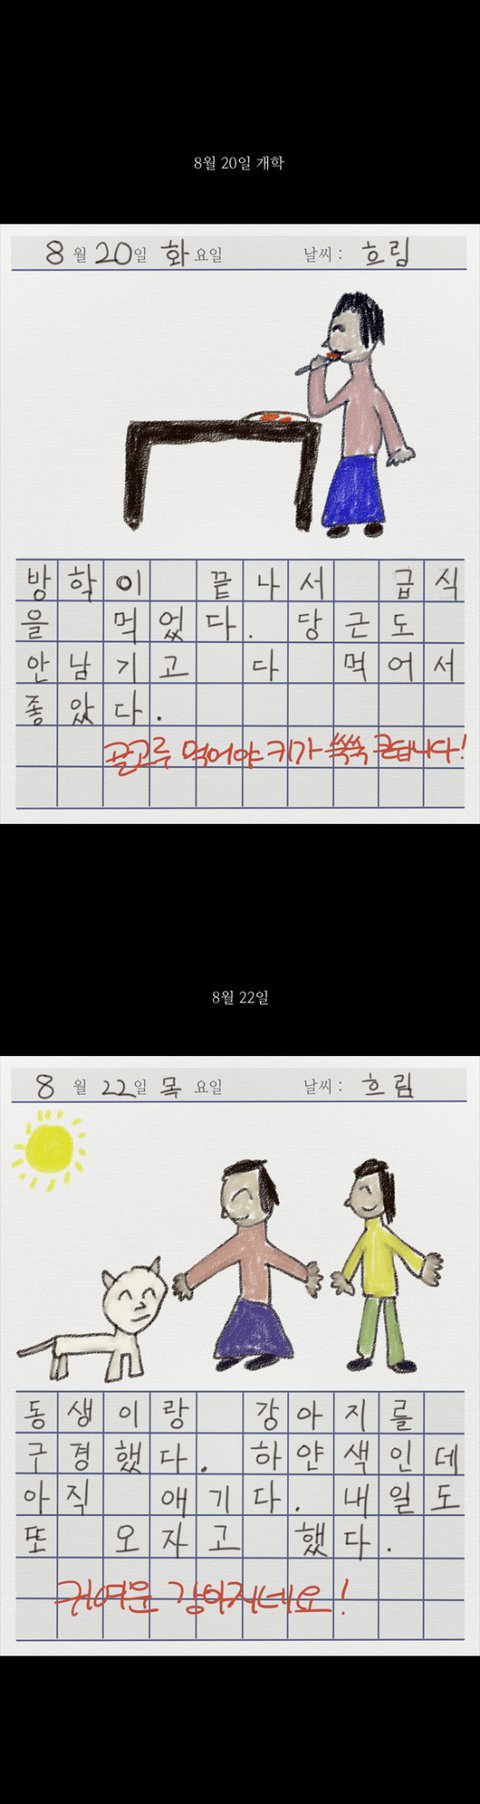 8월 20일 개학
8월 20일 화요일 날씨 : 흐림
방학이 끝나서 급식
을 먹었다. 당근도
안남기고 다 먹어서
좋았다.
골고루 먹어야 키가 쑥쑥 큰답니다!
8월 22일
8월 22일 목요일 날씨 : 흐림
동생이랑 강아지를
구경했다. 하얀색인데
아직 애기다. 내일도
또 오자고 했다.
귀여운 강아지네요!